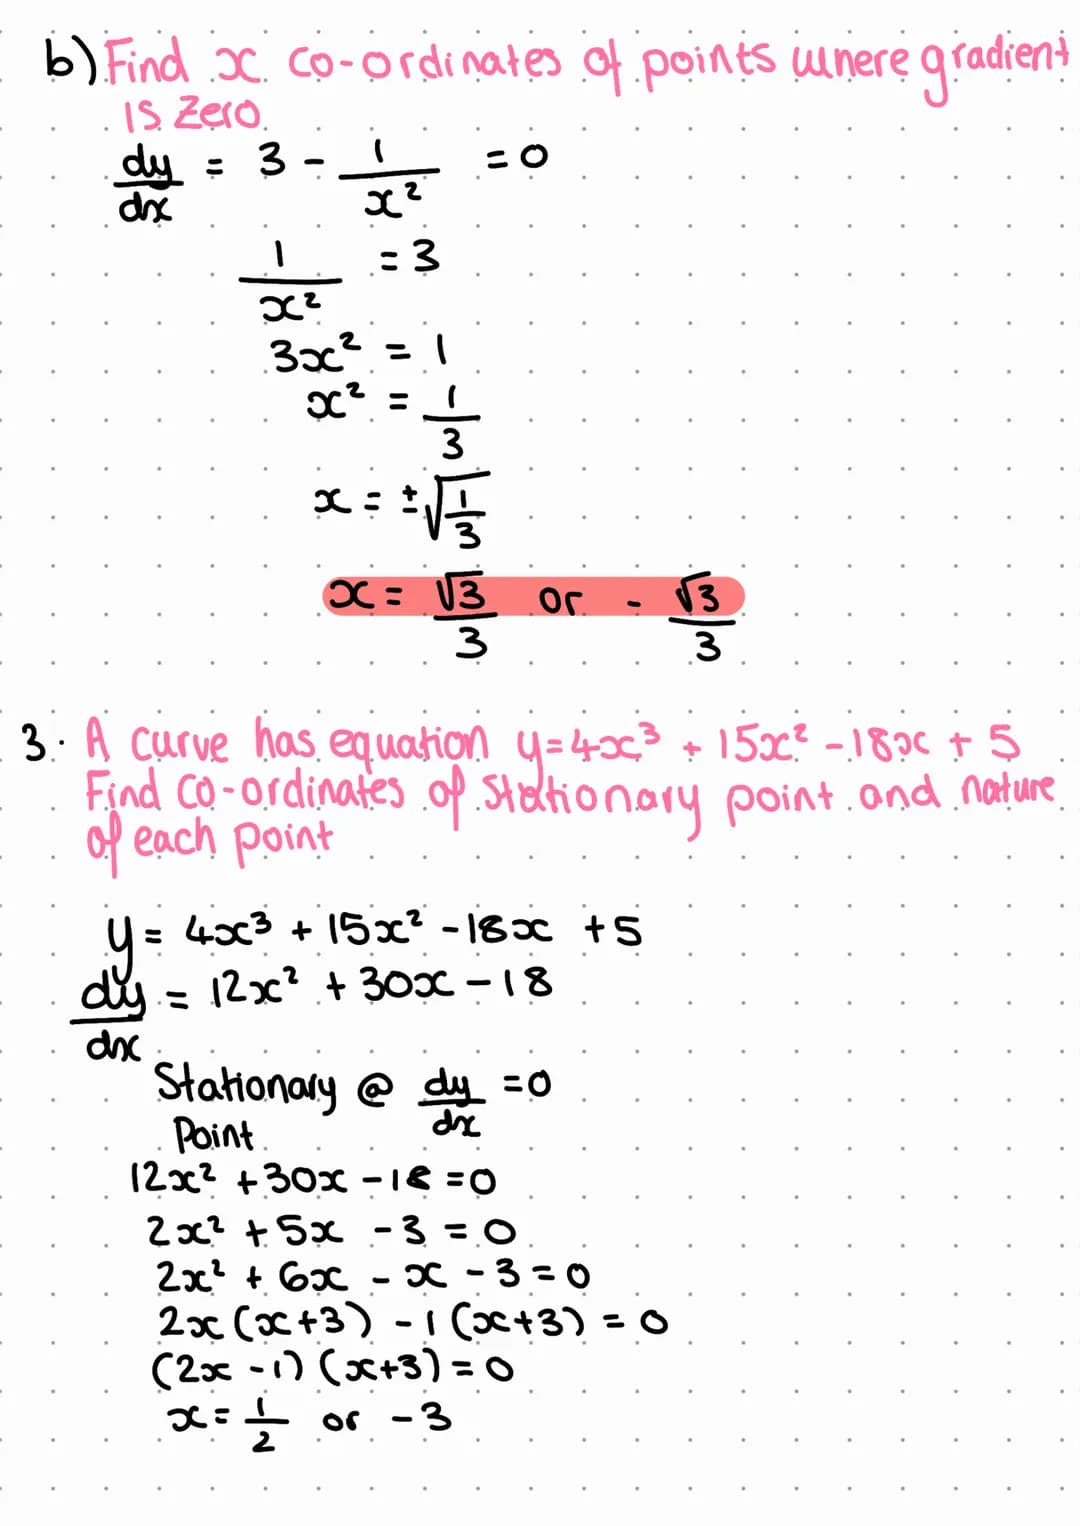 b) Find x co-ordinates of points where gradient
is zero
dy/dx = 3 - 1/x² = 0
1/x² = 3
3x² = 1
x² = 1/3
x = ±√(1/3)
x = √3/3 or - √3/3
3. A curve has equation y=4x³ + 15x² -18x + 5
Find co-ordinates of stationary point and nature
of each point
y = 4x³ + 15x² -18x +5
dy/dx = 12x² + 30x -18
Stationary @ dy/dx =0
Point
12x² +30x -18 =0
2x² +5x -3 = 0
2x² + 6x - x -3 = 0
2x (x+3) -1 (x+3) = 0
(2x -1) (x+3) = 0
x = 1/2 or -3